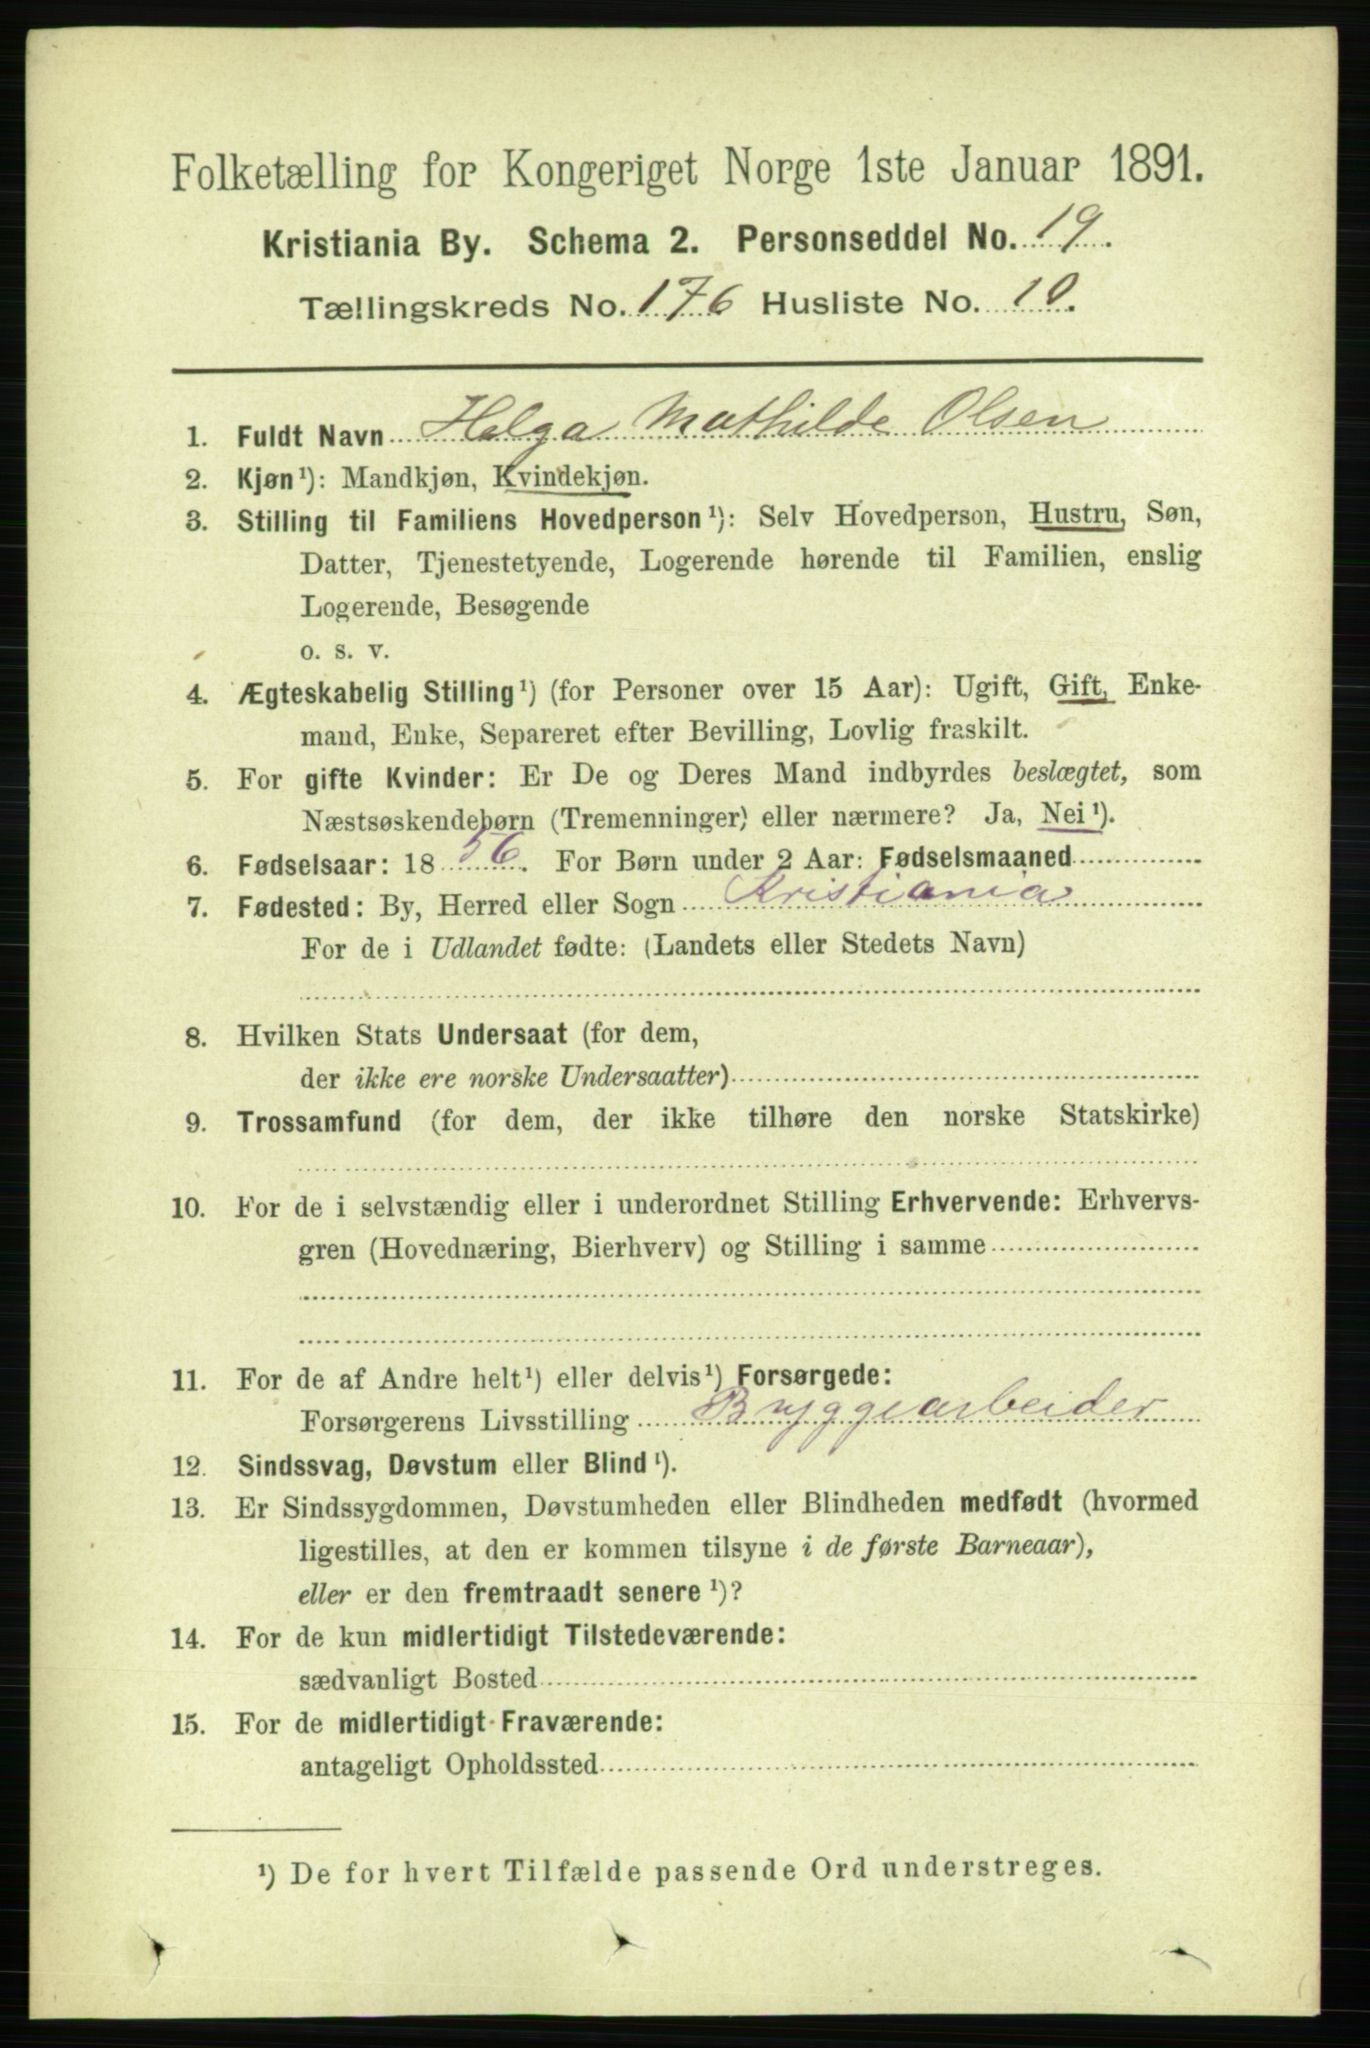 Folketælling for Kongeriget Norge 1ste Januar 1891.
Kristiania By. Schema 2. Personseddel No. 19.
Tællingskreds No. 176 Husliste No. 10.
1. Fuldt Navn Helga Mathilde Olsen
2. Kjøn¹): Mandkjøn, Kvindekjøn.
3. Stilling til Familiens Hovedperson¹): Selv Hovedperson, Hustru, Søn,
Datter, Tjenestetyende, Logerende hørende til Familien, enslig
Logerende, Besøgende
o. s. v.
4. Ægteskabelig Stilling¹) (for Personer over 15 Aar): Ugift, Gift, Enke-
mand, Enke, Separeret efter Bevilling, Lovlig fraskilt.
5. For gifte Kvinder: Er De og Deres Mand indbyrdes beslægtet, som
Næstsøskendebørn (Tremenninger) eller nærmere? Ja, Nei¹).
6. Fødselsaar: 1856. For Børn under 2 Aar: Fødselsmaaned
7. Fødested: By, Herred eller Sogn Kristiania
For de i Udlandet fødte: (Landets eller Stedets Navn)
8. Hvilken Stats Undersaat (for dem,
der ikke ere norske Undersaatter)
9. Trossamfund (for dem, der ikke tilhøre den norske Statskirke)
10. For de i selvstændig eller i underordnet Stilling Erhvervende: Erhvervs-
gren (Hovednæring, Bierhverv) og Stilling i samme
11. For de af Andre helt¹) eller delvis¹) Forsørgede:
Forsørgerens Livsstilling Bryggearbeider
12. Sindssvag, Døvstum eller Blind¹).
13. Er Sindssygdommen, Døvstumheden eller Blindheden medfødt (hvormed
ligestilles, at den er kommen tilsyne i de første Barneaar),
eller er den fremtraadt senere¹)?
14. For de kun midlertidigt Tilstedeværende:
sædvanligt Bosted
15. For de midlertidigt Fraværende:
antageligt Opholdssted
¹) De for hvert Tilfælde passende Ord understreges.